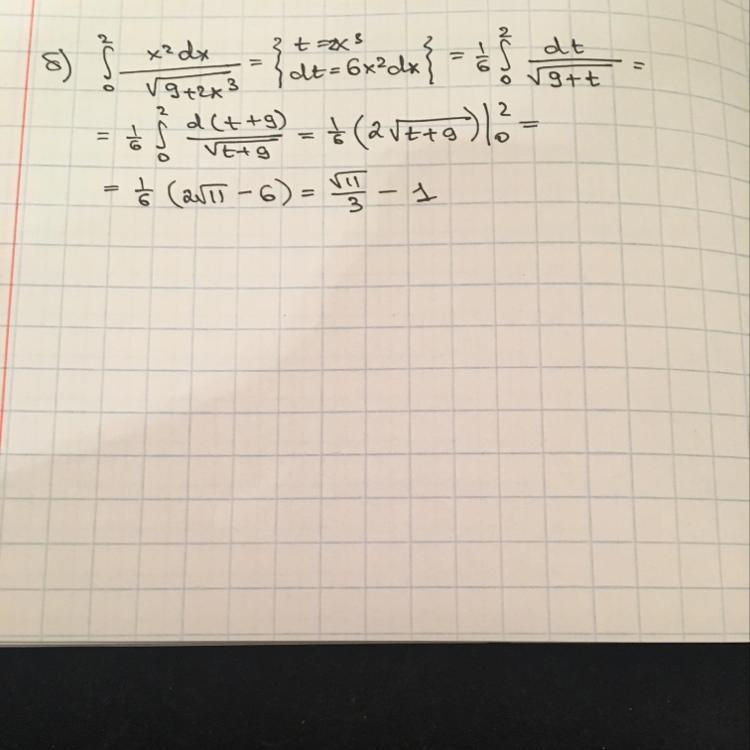 б) ∫₀² x²dx / √(9+2x³) = { t=2x³ dt=6x²dx } = 1/6 ∫₀² dt / √(9+t) =
= 1/6 ∫₀² d(t+9) / √(t+9) = 1/6 (2√(t+9)) |₀² =
= 1/6 (2√11 - 6) = √11/3 - 1